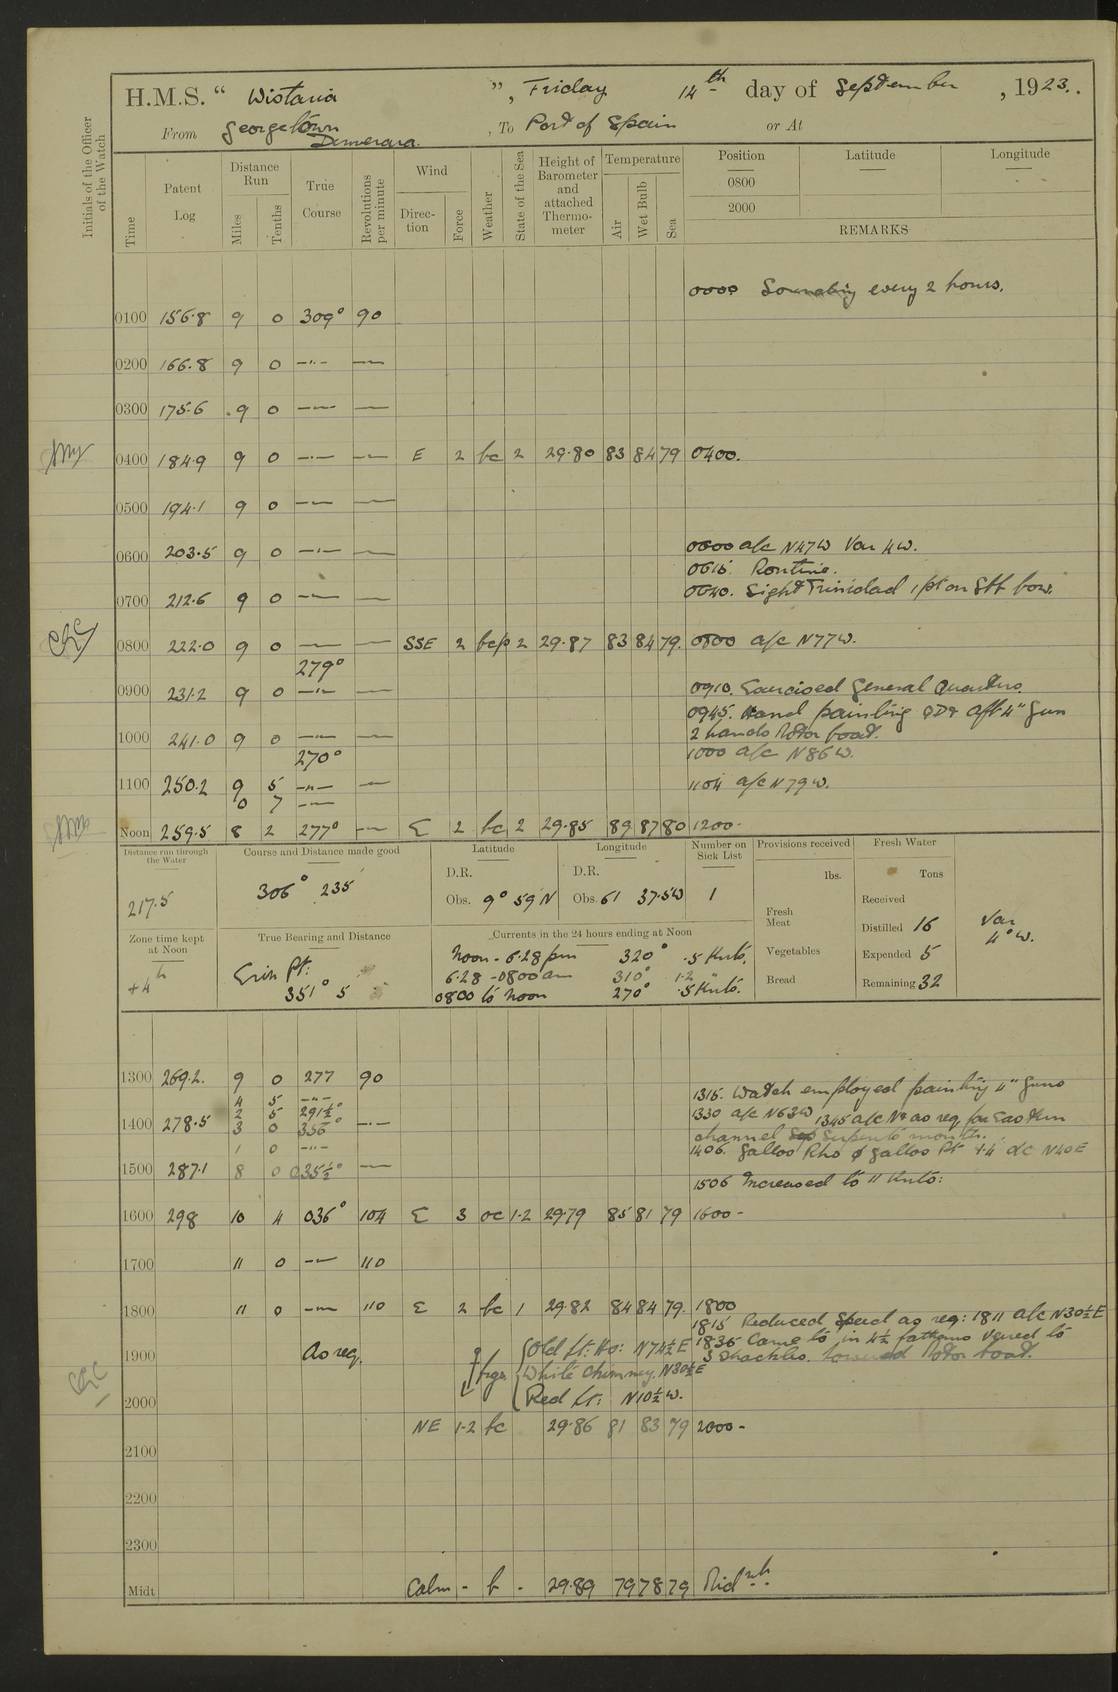 H.M.S. “ Wistaria ”, Friday 14th day of September, 1923.
From Georgetown Demerara. , To Port of Spain or At
Initials of the Officer of the Watch
Time
Patent Log
Distance Run
Miles
Tenths
True Course
Revolutions per minute
Wind
Direction
Force
Weather
State of the Sea
Height of Barometer and attached Thermometer
Temperature
Air
Wet Bulb
Sea
Position Latitude Longitude
0800
2000
REMARKS
0000 Sounding every 2 hours.
0100 156.8 9 0 309° 90
0200 166.8 9 0 —"— —
0300 175.6 9 0 —"— —
0400 184.9 9 0 —"— — E 2 bc 2 29.80 83 84 79 0400.
0500 194.1 9 0 —"— —
0600 203.5 9 0 —"— — 0600 a/c N47W Var 4W.
0615. Routine.
0640. Sight Trinidad 1 pt on Stb bow.
0700 212.6 9 0 —"— —
0800 222.0 9 0 —"— — SSE 2 bcp 2 29.87 83 84 79. 0800 a/c N77W.
279°
0900 231.2 9 0 —"— — 0910. Exercised General Quarters.
0945. Hand painting QD & aft 4" Gun
2 hands Motor boat.
1000 241.0 9 0 —"— — 1000 a/c N86W.
270°
1100 250.2 9 5 —"— — 1104 a/c N79W.
0 7 —"—
Noon 259.5 8 2 277° — E 2 bc 2 29.85 89 87 80 1200.
Distance run through the Water
217.5
Course and Distance made good
306° 235'
Latitude
D.R.
Obs. 9° 59' N
Longitude
D.R.
Obs. 61 37.5W
Number on Sick List
1
Provisions received
lbs.
Fresh Meat
Vegetables
Bread
Fresh Water
Tons
Received
Distilled 16
Expended 5
Remaining 32
Var 4° W.
Zone time kept at Noon
+4h
True Bearing and Distance
Erin Pt: 351° 5'
Currents in the 24 hours ending at Noon
Noon - 6.28 pm 320° .5 Knts.
6.28 - 0800 am 310° 1.2 "
0800 to noon 270° .5 Knts.
1300 269.2. 9 0 277 90
4 5 —"— 1315. Watch employed painting 4" Guns
2 5 291½° 1330 a/c N63W 1345 a/c N & as req for Eastern
1400 278.5 3 0 355° —"— channel Serpents mouth.
1 0 —"— 1406. Gallos Rks Gallos Pt a/c N40E
1500 287.1 8 0 035½° —
1506 Increased to 11 Knts:
1600 298 10 4 036° 104 E 3 oc 1-2 29.79 85 81 79 1600 -
1700 11 0 —"— 110
1800 11 0 —"— 110 E 2 bc 1 29.82 84 84 79. 1800
1815 Reduced Speed as req: 1811 a/c N30½E
1836 Came to in 4½ fathoms veered to
3 Shackles. Lowered Motor boat.
1900 As req.
brgs { Old Lt: Ho: N74½E
White Chimney. N30½E
Red Lt: N10½W.
2000 NE 1-2 bc 29.86 81 83 79 2000 -
2100
2200
2300
Midt Calm - b - 29.89 79 78 79 Midnt.